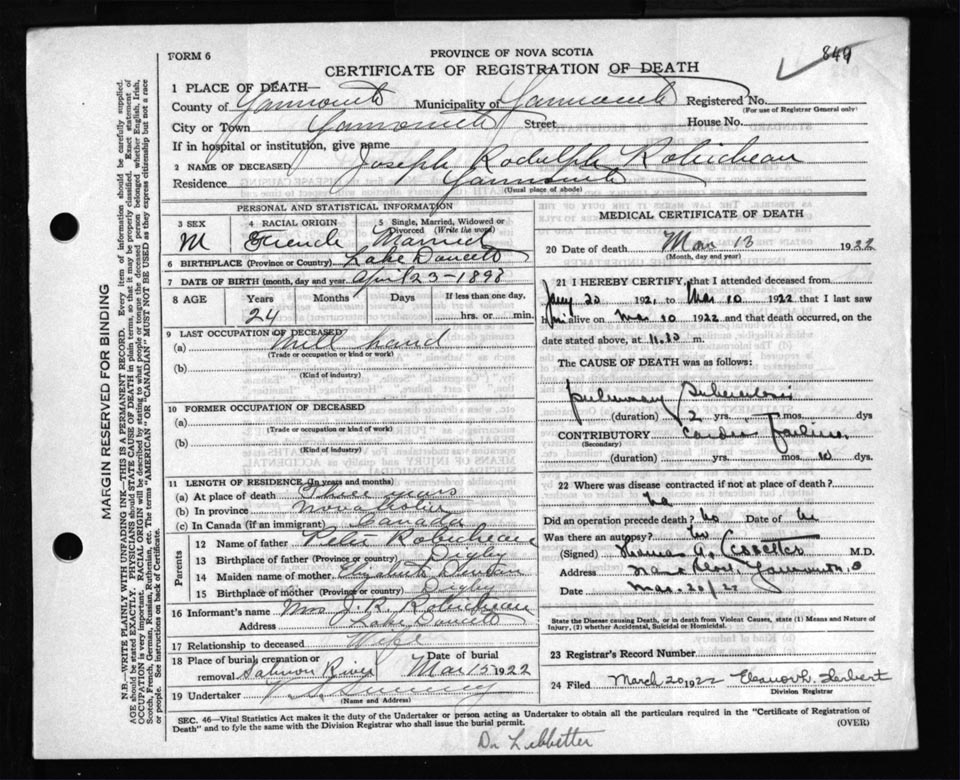 FORM 6
PROVINCE OF NOVA SCOTIA
849
CERTIFICATE OF REGISTRATION OF DEATH
1 PLACE OF DEATH—
County of Yarmouth Municipality of Yarmouth Registered No.
(For use of Registrar General only)
City or Town Yarmouth Street House No.
If in hospital or institution, give name
2 NAME OF DECEASED Joseph Rodulph Robicheau
Residence Yarmouth
(Usual place of abode)
PERSONAL AND STATISTICAL INFORMATION
3 SEX M
4 RACIAL ORIGIN French
5 Single, Married, Widowed or Divorced (Write the word) Married
6 BIRTHPLACE (Province or Country) Lake Doucett
7 DATE OF BIRTH (month, day and year) April 23-1898
8 AGE Years Months Days If less than one day,
24 hrs. or min.
9 LAST OCCUPATION OF DECEASED
(a) Mill hand
(Trade or occupation or kind or work)
(b)
(Kind of industry)
10 FORMER OCCUPATION OF DECEASED
(a)
(Trade or occupation or kind of work)
(b)
(Kind of industry)
11 LENGTH OF RESIDENCE (In years and months)
(a) At place of death Three years
(b) In province Nova Scotia
(c) In Canada (if an immigrant) Canada
Parents
12 Name of father Peter Robicheau
13 Birthplace of father (Province or country) Digby
14 Maiden name of mother Elizabeth
15 Birthplace of mother (Province or country) Digby
16 Informant's name Mrs J. R. Robicheau
Address Lake Doucett
17 Relationship to deceased Wife
18 Place of burial, cremation or removal Salmon River Date of burial Mar 15 1922
19 Undertaker
(Name and Address)
MEDICAL CERTIFICATE OF DEATH
20 Date of death Mar 13 1922
(Month, day and year)
21 I HEREBY CERTIFY, that I attended deceased from
Jany 20 1921 to Mar 10 1922 that I last saw
him alive on Mar 10 1922 and that death occurred, on
date stated above, at m.
The CAUSE OF DEATH was as follows:
Pulmonary Tuberculosis
(duration) 2 yrs. mos. dys
CONTRIBUTORY Cardiac Failure
(Secondary)
(duration) yrs. mos. 10 dys.
22 Where was disease contracted if not at place of death?
Did an operation precede death? No Date of
Was there an autopsy? No
(Signed) Thomas A. M.D.
Address Yarmouth,
Date
State the Disease causing Death, or in death from Violent Causes, state (1) Means and Nature of Injury, (2) whether Accidental, Suicidal or Homicidal.
23 Registrar's Record Number
24 Filed March 20 1922 Eleanor L. Herbert
Division Registrar
SEC. 46—Vital Statistics Act makes it the duty of the Undertaker or person acting as Undertaker to obtain all the particulars required in the "Certificate of Registration of
Death" and to fyle the same with the Division Registrar who shall issue the burial permit. (OVER)
Dr Lebbetter
MARGIN RESERVED FOR BINDING
N.B.—WRITE PLAINLY WITH UNFADING INK—THIS IS A PERMANENT RECORD. Every item of information should be carefully supplied.
AGE should be stated EXACTLY. PHYSICIANS should STATE CAUSE OF DEATH in plain terms, so that it may be properly classified. Exact statement of
OCCUPATION is very important. RACIAL ORIGIN will be described by stating to what people or tongue the deceased person belonged whether English, Irish,
Scotch, French, German, Russian, Ruthenian, etc. The terms "AMERICAN" OR "CANADIAN" MUST NOT BE USED as they express citizenship but not a race
or people. See instructions on back of Certificate.